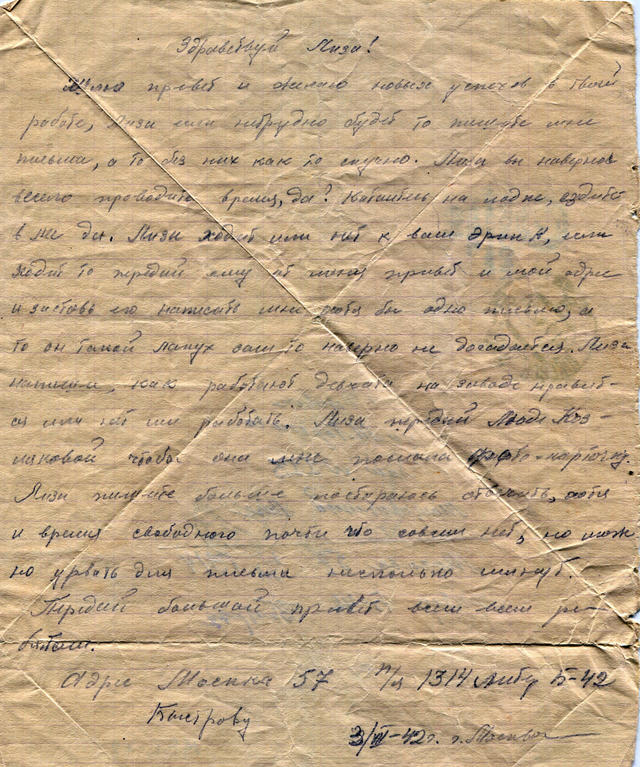 Здравствуй Лиза!
Шлю привет и желаю новых успехов в твоей
работе, Лиза если нетрудно будет то пишите мне
письма, а то без них как то скучно. Лиза вы наверное
весело проводите время, да? Катаитесь на лодке, ездите
в да. Лиза ходит или нет к вам Эрик А, если
ходит то передай ему от меня привет и мой адрес
и заставь его написать мне хотя бы одно письмо, а
то он такой лапух сам то наверно не догадается. Лиза
напиши, как работают девчата на заводе нравит-
ся или нет им работать. Лиза передай Люде Куз-
маковой чтобы она мне послала фото-карточку.
Лиза пишите больше постараюсь ответить, хотя
и время свободного почти что совсем нет, но мож
но урвать для письма несколько минут.
Передай большой привет всем всем ре-
бятам.
Адрес Москва 57 п/я 1314 Литер Б-42
Быстрову
3/VII-42г. г. Москва